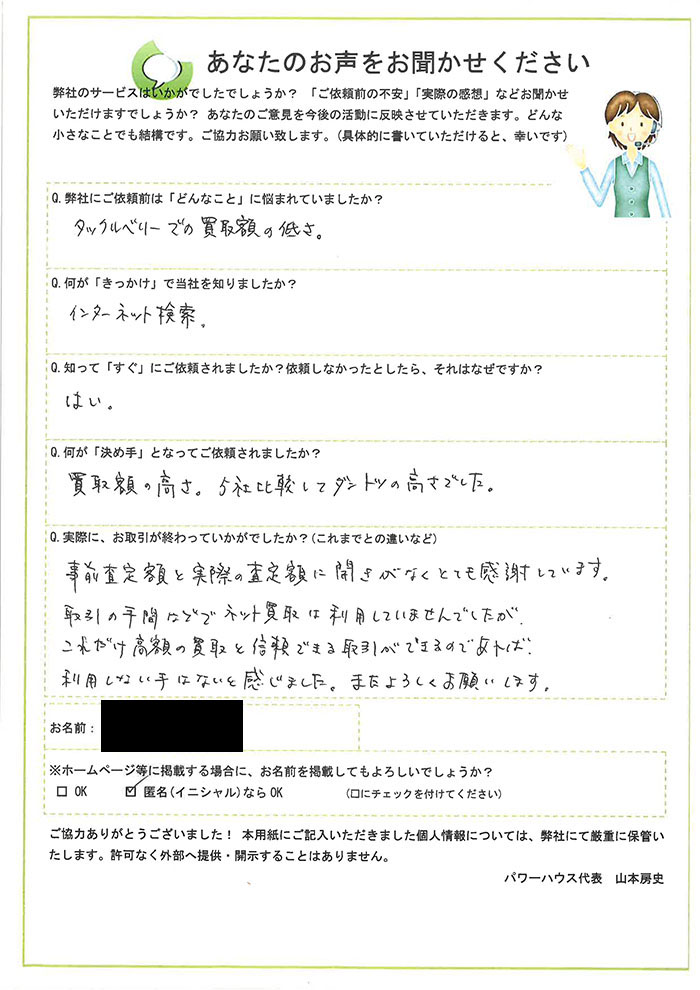 あなたのお声をお聞かせください
弊社のサービスはいかがでしたでしょうか？ 「ご依頼前の不安」「実際の感想」などお聞かせ
いただけますでしょうか？ あなたのご意見を今後の活動に反映させていただきます。どんな
小さなことでも結構です。ご協力お願い致します。(具体的に書いていただけると、幸いです)
Q.弊社にご依頼前は「どんなこと」に悩まれていましたか？
タックルベリーでの買取額の低さ。
Q.何が「きっかけ」で当社を知りましたか？
インターネット検索。
Q.知って「すぐ」にご依頼されましたか？依頼しなかったとしたら、それはなぜですか？
はい。
Q.何が「決め手」となってご依頼されましたか？
買取額の高さ。5社比較してダントツの高さでした。
Q.実際に、お取引が終わっていかがでしたか？(これまでとの違いなど)
事前査定額と実際の査定額に開きがなくとても感謝しています。
取引の手間などでネット買取は利用していませんでしたが、
これだけ高額の買取と信頼できる取引ができるのであれば、
利用しない手はないと感じました。またよろしくお願いします。
お名前：
※ホームページ等に掲載する場合に、お名前を掲載してもよろしいでしょうか？
□ OK ☑ 匿名(イニシャル)なら OK (□にチェックを付けてください)
ご協力ありがとうございました！ 本用紙にご記入いただきました個人情報については、弊社にて厳重に保管い
たします。許可なく外部へ提供・開示することはありません。
パワーハウス代表 山本房史